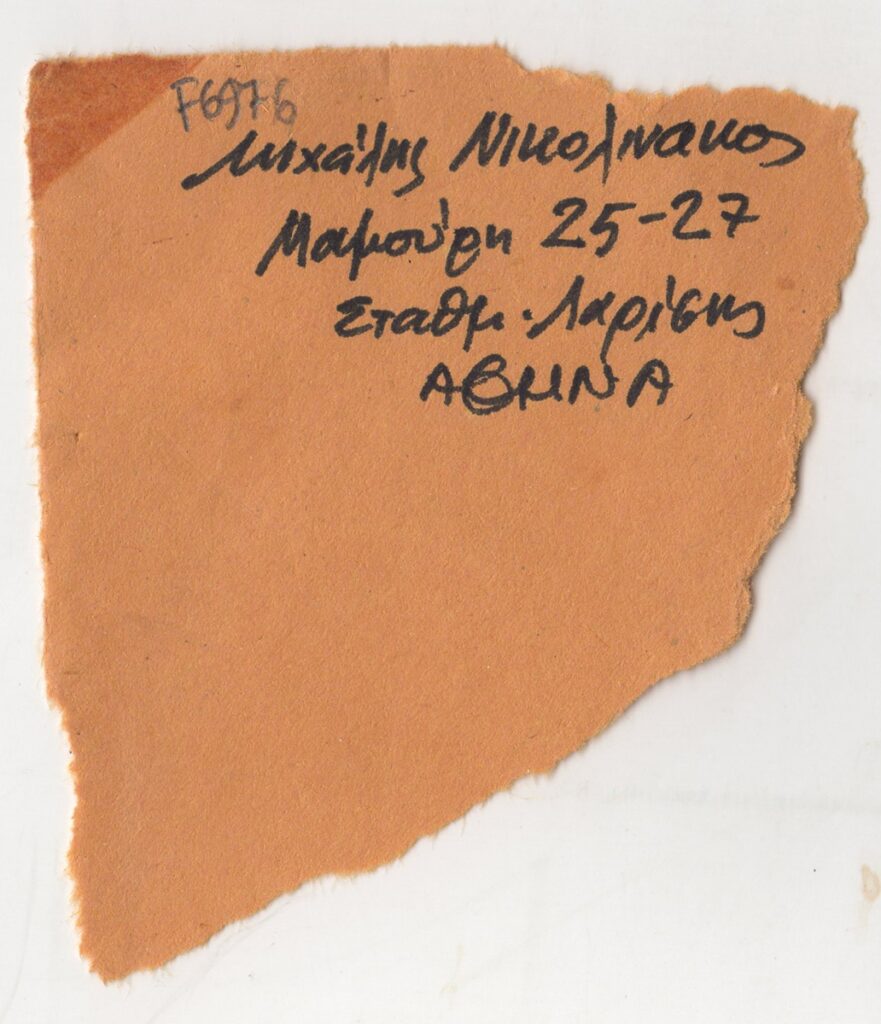 F6976
Μιχάλης Νικολινακος
Μαμούρη 25-27
Σταθμ. Λαρίσης
ΑΘΗΝΑ